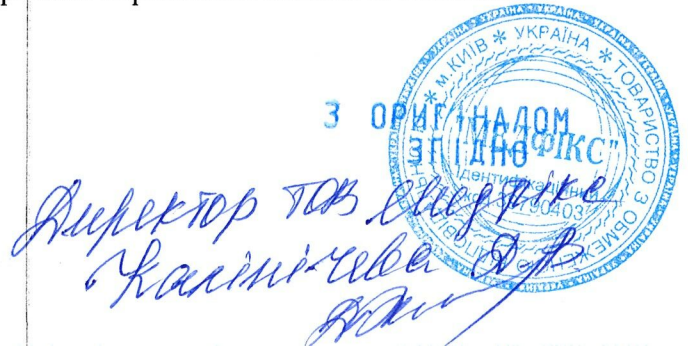 З ОРИГІНАЛОМ
ЗГІДНО
* М.КИЇВ * УКРАЇНА * ТОВАРИСТВО З ОБМЕЖЕНОЮ
"МЕДФІКС"
Ідентифікаційний
Директор ТОВ Медфікс
Калінічева